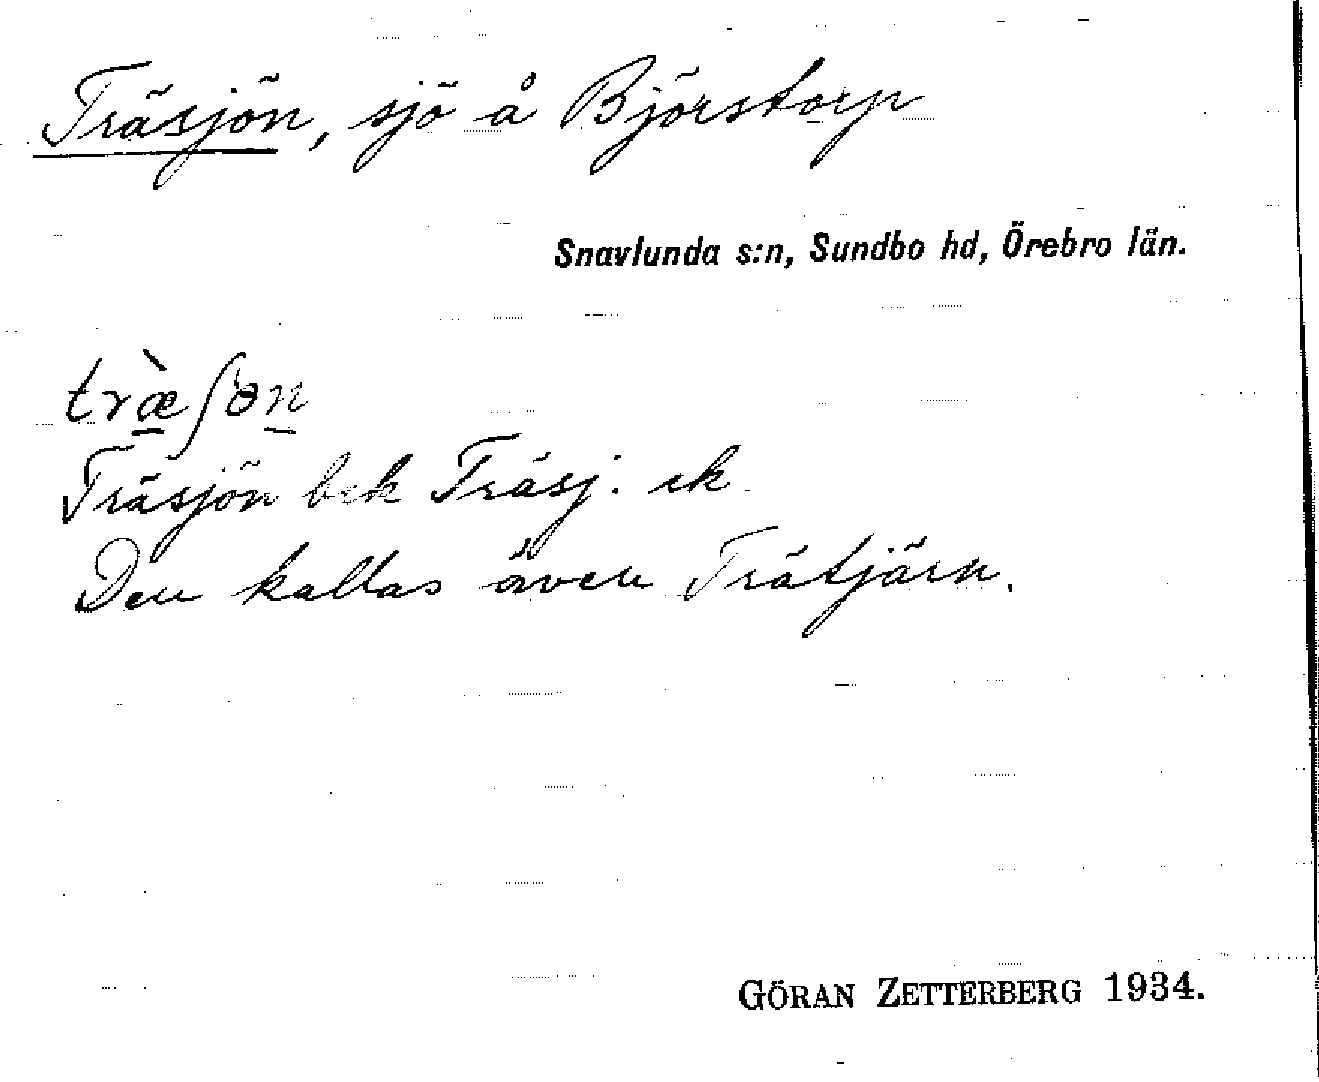 Träsjön, sjö å Björstorp
Snavlunda s:n, Sundbo hd, Örebro län.
træ̀ʃön
Träsjön bek Träsj: ek
Den kallas även Trätjärn.
GÖRAN ZETTERBERG 1934.